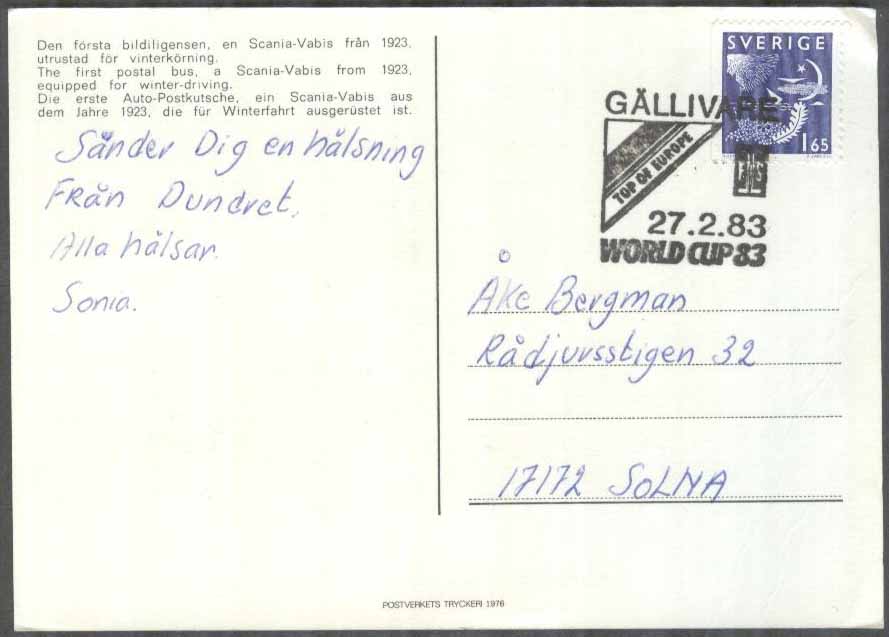 Den första bildiligensen, en Scania-Vabis från 1923,
utrustad för vinterkörning.
The first postal bus, a Scania-Vabis from 1923,
equipped for winter-driving.
Die erste Auto-Postkutsche, ein Scania-Vabis aus
dem Jahre 1923, die für Winterfahrt ausgerüstet ist.
Sänder Dig en hälsning
Från Dundret.
Alla hälsar.
Sonia.
SVERIGE
165
GÄLLIVARE
TOP OF EUROPE
27.2.83
WORLD CUP 83
Åke Bergman
Rådjursstigen 32
17172 SOLNA
POSTVERKETS TRYCKERI 1976